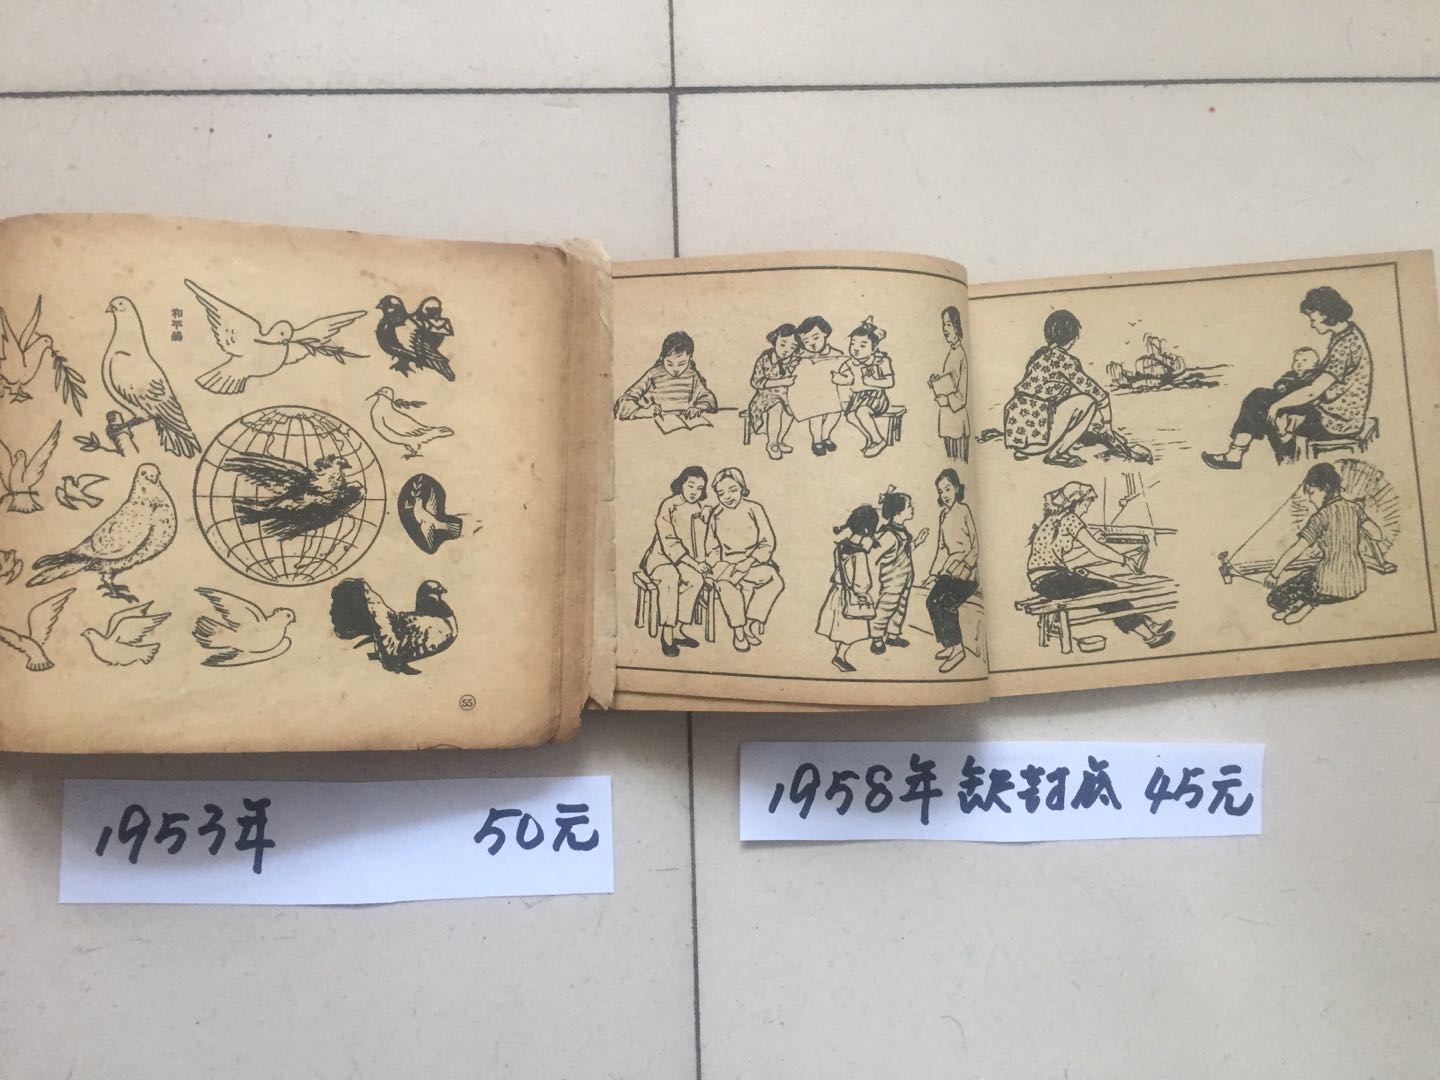 和平鴿
55
1953年 50元
1958年 缺封底 45元